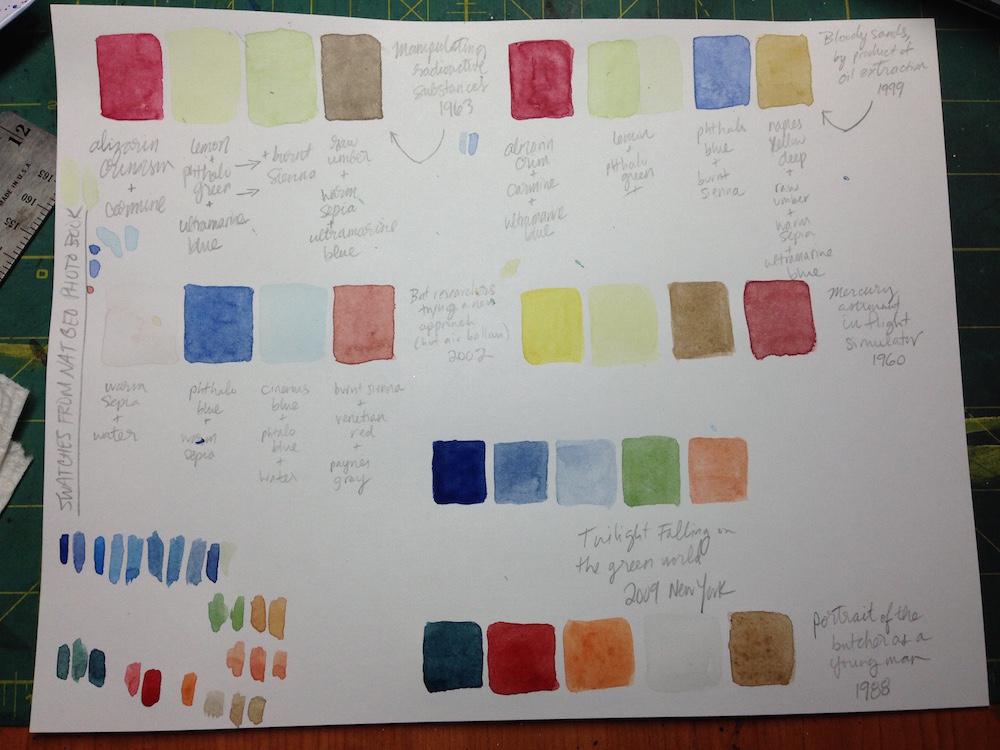 Manipulating
radioactive
substances
1963
alizarin
crimson
+
carmine
lemon
+
phthalo
green
+
ultramarine
blue
+ burnt
sienna
raw
umber
+
warm
sepia
+
ultramarine
blue
Bloody sands,
by product of
oil extraction
1999
crim
+
carmine
+
ultramarine
blue
lemon
+
phthalo
green
+
phthalo
blue
+
burnt
sienna
naples
yellow
deep
+
raw
umber
+
warm
sepia
+
ultramarine
blue
SWATCHES FROM NAT GEO PHOTO BOOK
warm
sepia
+
water
phthalo
blue
+
warm
sepia
cinereous
blue
+
phtalo
blue
+
water
burnt sienna
+
venetian
red
+
paynes
gray
researchers
trying a new
approach
(hot air ballon)
2002
Mercury
astronaut
in flight
simulator
1960
Twilight Falling on
the green world
2009 New York
portrait of the
butcher as a
young man
1988
12
MADE IN U.S.A.
165
160
155